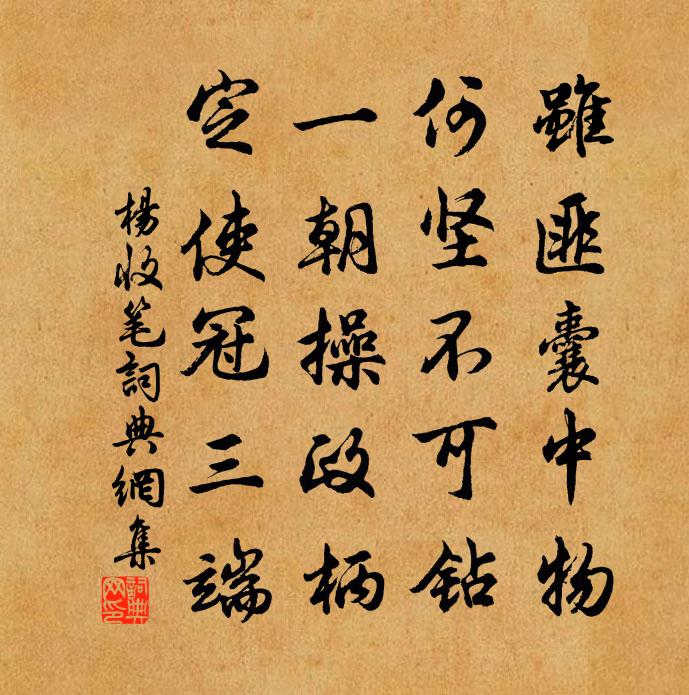 雖匪囊中物
何坚不可钻
一朝操政柄
定使冠三端
楊收笔詞典網集
詞典网印